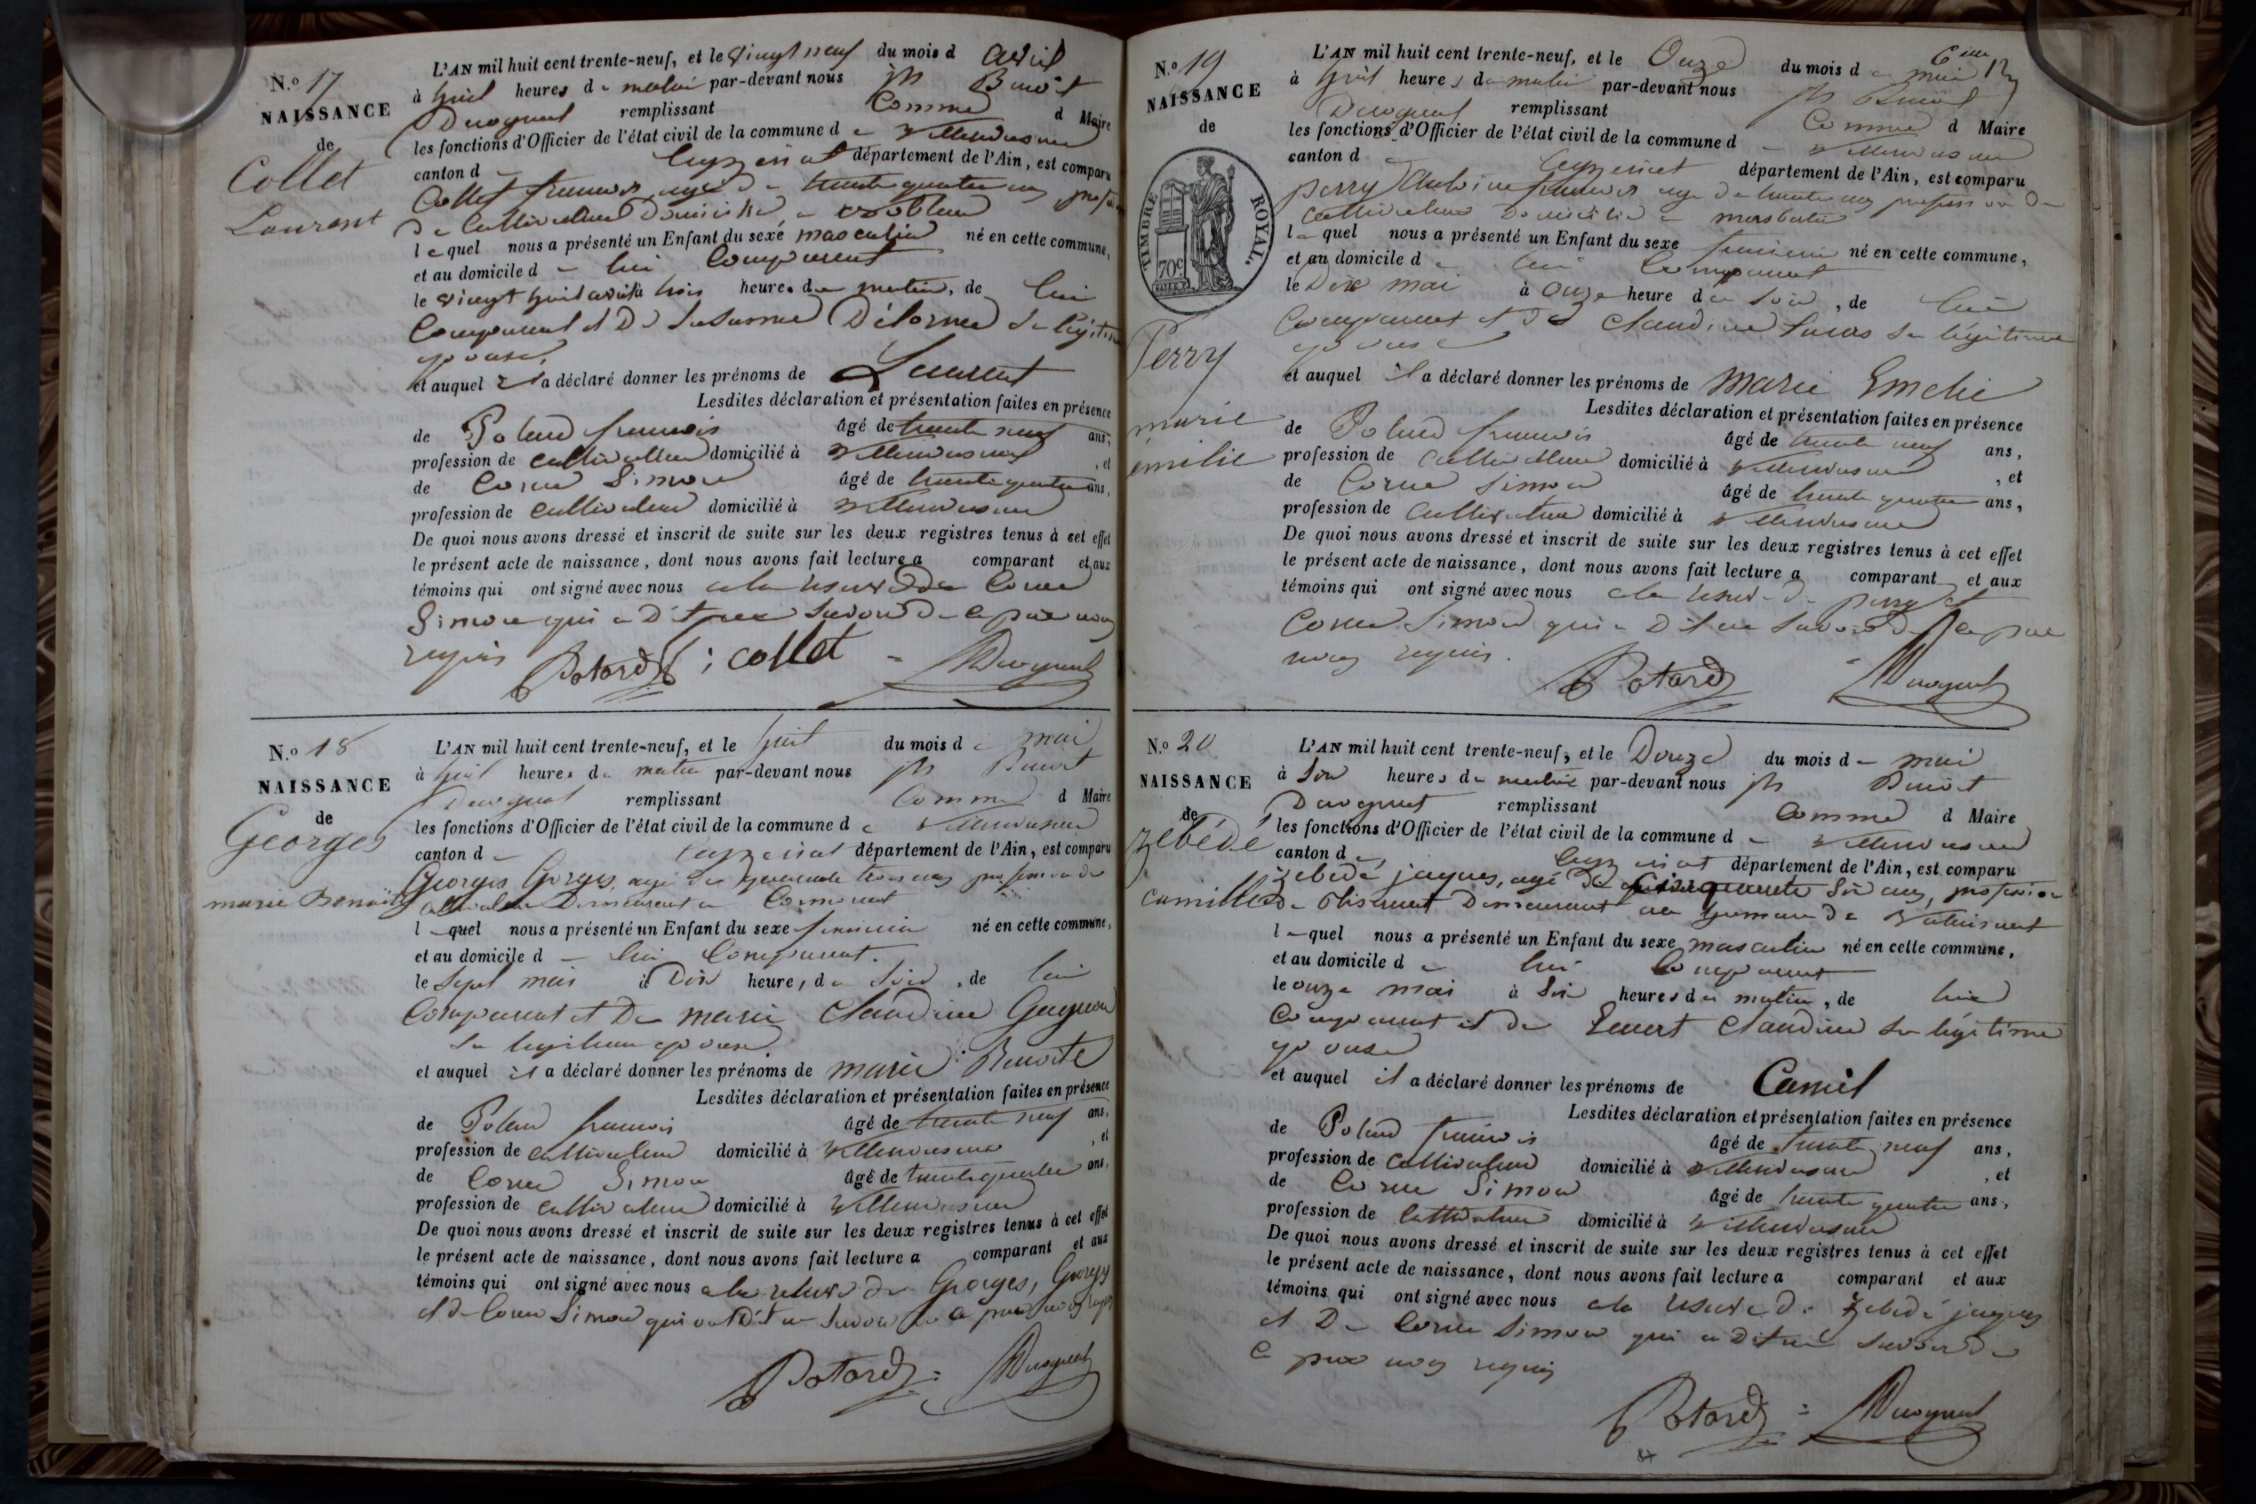 N.o 17
NAISSANCE
de
Collet
Laurent
L'AN mil huit cent trente-neuf, et le vingt neuf du mois d avril
à huit heures du matin par-devant nous jh Benoît
remplissant Comme d Maire
les fonctions d'Officier de l'état civil de la commune d e Villereversure
canton d e Ceyzeriat département de l'Ain, est comparu
Collet francois agé de trente quatre ans profession
de Cultivateur Domicilié a
lequel nous a présenté un Enfant du sexe masculin né en cette commune,
et au domicile d e lui Comparant
le vingt huit avril à trois heures du matin, de lui
Comparant et De Susanne Délorme sa légitime
épouse
et auquel il a déclaré donner les prénoms de Laurent
Lesdites déclaration et présentation faites en présence
de Potard francois âgé de trente neuf ans,
profession de cultivateur domicilié à Villereversure, et
de Corne Simon âgé de trente quatre ans,
profession de cultivateur domicilié à Villereversure
De quoi nous avons dressé et inscrit de suite sur les deux registres tenus à cet effet
le présent acte de naissance, dont nous avons fait lecture a comparant et aux
témoins qui ont signé avec nous a la réserve de Corne
Simon qui a Dit ne Savoir de ce faire nous
requis
Potard ; collet =
N.o 18
NAISSANCE
de
Georges
marie Benoite
L'AN mil huit cent trente-neuf, et le huit du mois d e mai
à huit heures du matin par-devant nous jh Benoit
remplissant Comme d Maire
les fonctions d'Officier de l'état civil de la commune d e Villereversure
canton d e Ceyzeriat département de l'Ain, est comparu
Georges Georges, agé de quarante trois ans profession de
cultivateur Demeurant a
lequel nous a présenté un Enfant du sexe feminin né en cette commune,
et au domicile d e lui Comparant.
le Sept mai à Dix heures du Soir, de lui
Comparant et De marie Claudine Gagneux
Sa legitime epouse
et auquel il a déclaré donner les prénoms de marie Benoite
Lesdites déclaration et présentation faites en présence
de Potard francois âgé de trente neuf ans,
profession de cultivateur domicilié à Villereversure, et
de Corne Simon âgé de trente quatre ans,
profession de cultivateur domicilié à Villereversure
De quoi nous avons dressé et inscrit de suite sur les deux registres tenus à cet effet
le présent acte de naissance, dont nous avons fait lecture a comparant et aux
témoins qui ont signé avec nous a la reserve de Georges, Georges
et de Corne Simon qui ont Dit ne Savoir de ce faire nous requis
Potard =
N.o 19
NAISSANCE
de
TIMBRE ROYAL.
70c
Perry
marie
émilie
L'AN mil huit cent trente-neuf, et le Onze du mois d e mai
à huit heures du matin par-devant nous jh Benoit
remplissant Comme d Maire
les fonctions d'Officier de l'état civil de la commune d e Villereversure
canton d e Ceyzeriat département de l'Ain, est comparu
perry Antoine francois agé de trente ans profession de
Cultivateur Domicilié a
lequel nous a présenté un Enfant du sexe feminin né en cette commune,
et au domicile d e lui Comparant
le Dix mai à Onze heure du Soir, de lui
Comparant et De Claudine Sa légitime
epouse
et auquel il a déclaré donner les prénoms de marie Emelie
Lesdites déclaration et présentation faites en présence
de Potard francois âgé de trente neuf ans,
profession de Cultivateur domicilié à Villereversure, et
de Corne Simon âgé de trente quatre ans,
profession de Cultivateur domicilié à Villereversure
De quoi nous avons dressé et inscrit de suite sur les deux registres tenus à cet effet
le présent acte de naissance, dont nous avons fait lecture a comparant et aux
témoins qui ont signé avec nous a la réserve de perry et
Corne Simon qui a Dit ne Savoir de ce faire
nous requis.
Potard =
N.o 20
NAISSANCE
de
zébédé
camille
L'AN mil huit cent trente-neuf, et le Douze du mois d e mai
à Six heures du matin par-devant nous jh Benoit
remplissant Comme d Maire
les fonctions d'Officier de l'état civil de la commune d e Villereversure
canton d e Ceyzeriat département de l'Ain, est comparu
zebedé jaques, agé de Cinquante Six ans, profession
de Demeurant au hameau de
lequel nous a présenté un Enfant du sexe masculin né en cette commune,
et au domicile d e lui Comparant
le onze mai à Six heures du matin, de lui
Comparant et de Claudine Sa légitime
epouse
et auquel il a déclaré donner les prénoms de Camil
Lesdites déclaration et présentation faites en présence
de Potard francois âgé de trente neuf ans,
profession de Cultivateur domicilié à Villereversure, et
de Corne Simon âgé de trente quatre ans,
profession de Cultivateur domicilié à Villereversure
De quoi nous avons dressé et inscrit de suite sur les deux registres tenus à cet effet
le présent acte de naissance, dont nous avons fait lecture a comparant et aux
témoins qui ont signé avec nous a la réserve de Zebedé jaques
et De Corne Simon qui a Dit ne Savoir de
ce faire nous requis
Potard =